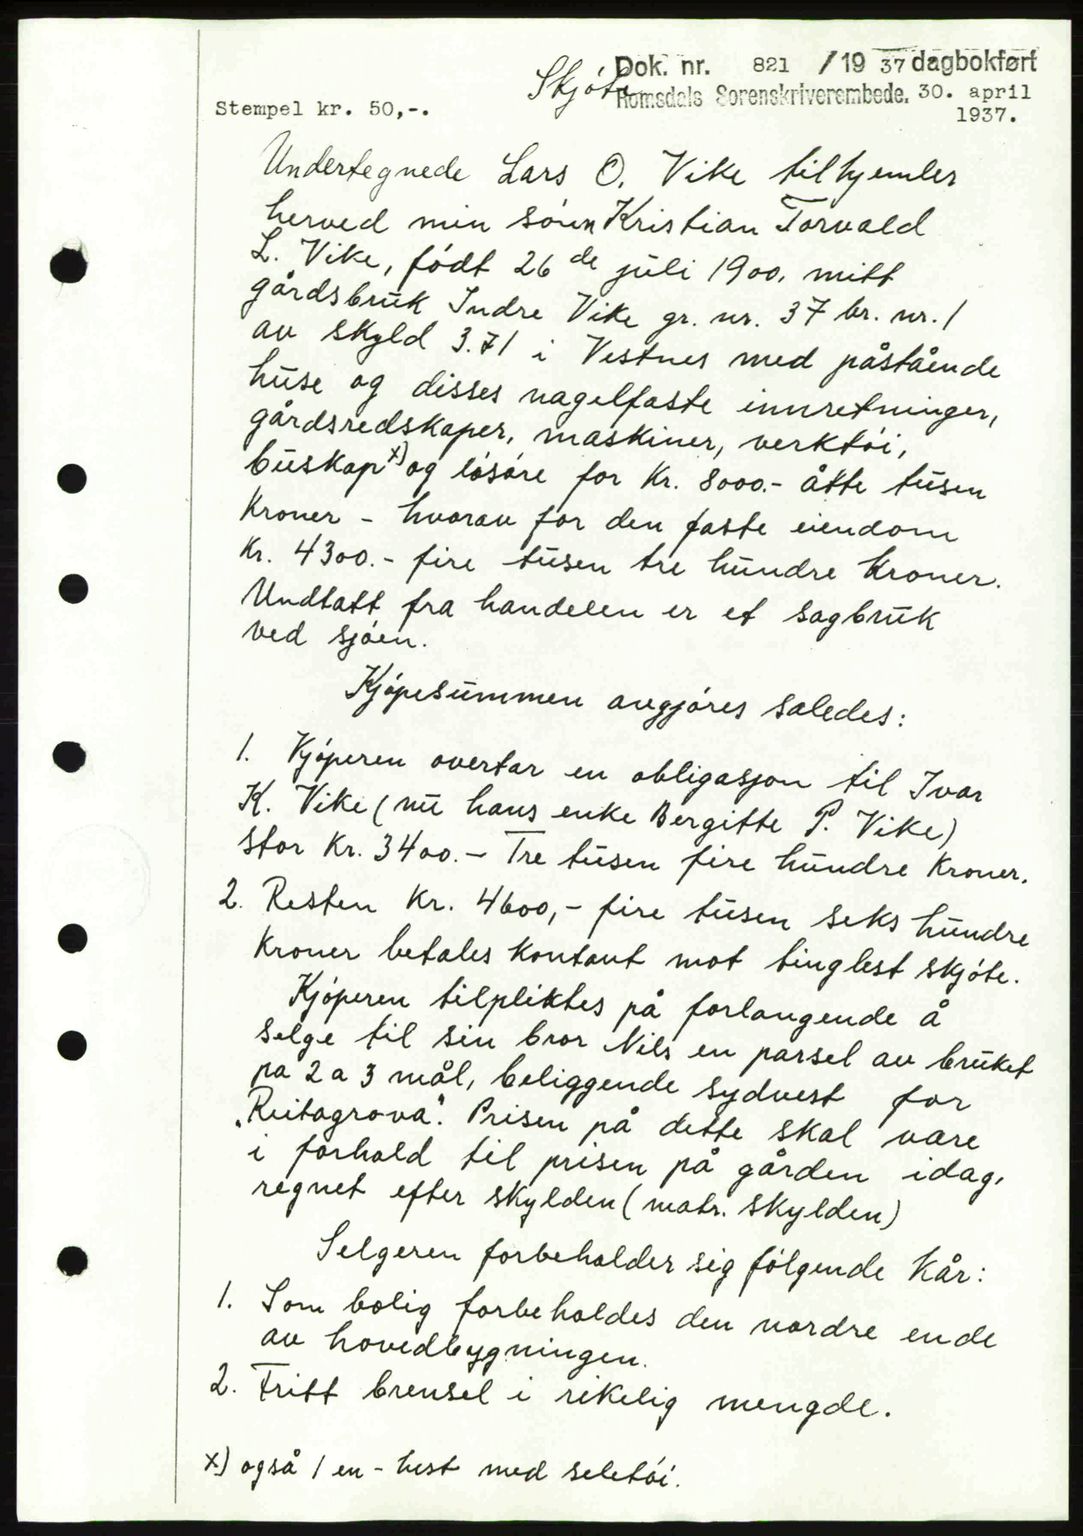 Skjöte
Dok. nr. 821 /19 37 dagbokført
Romsdals Sorenskriverembede. 30. april
1937.
Stempel kr. 50,-.
Undertegnede Lars O. Vike tilhjemler
herved min sönn Kristian Torvald
L. Vike, födt 26de juli 1900, mitt
gårdsbruk Indre Vike gr. nr. 37 br. nr. 1
av skyld 3.71 i Vestnes med påstående
huse og disses nagelfaste innretninger,
gårdsredskaper, maskiner, verktöi,
buskap x) og lösöre for Kr. 8000.- åtte tusen
Kroner - hvorav for den faste eiendom
Kr. 4300.- fire tusen tre hundre Kroner.
Undtatt fra handelen er et sagbruk
ved sjöen.
Kjöpesummen avgjöres saledes:
1. Kjöperen overtar en obligasjon til Ivar
K. Vike (nu hans enke Bergitte P. Vike)
stor Kr. 3400.- Tre tusen fire hundre Kroner.
2. Resten Kr. 4600,- fire tusen seks hundre
Kroner betales Kontant mot tinglest skjöte.
Kjöperen tilpliktes på forlangende å
selge til sin bror Nils en parsel av bruket
pa 2 a 3 mål, beliggende sydvest for
"Reitagrova". Prisen på dette skal være
i forhold til prisen på gården idag,
regnet efter skylden (matr. skylden)
Selgeren forbeholder sig fölgende Kår:
1. Som bolig forbeholdes den nordre ende
av hovedbygningen.
2. Fritt brensel i rikelig mengde.
x) også 1 en - hest med seletöi.